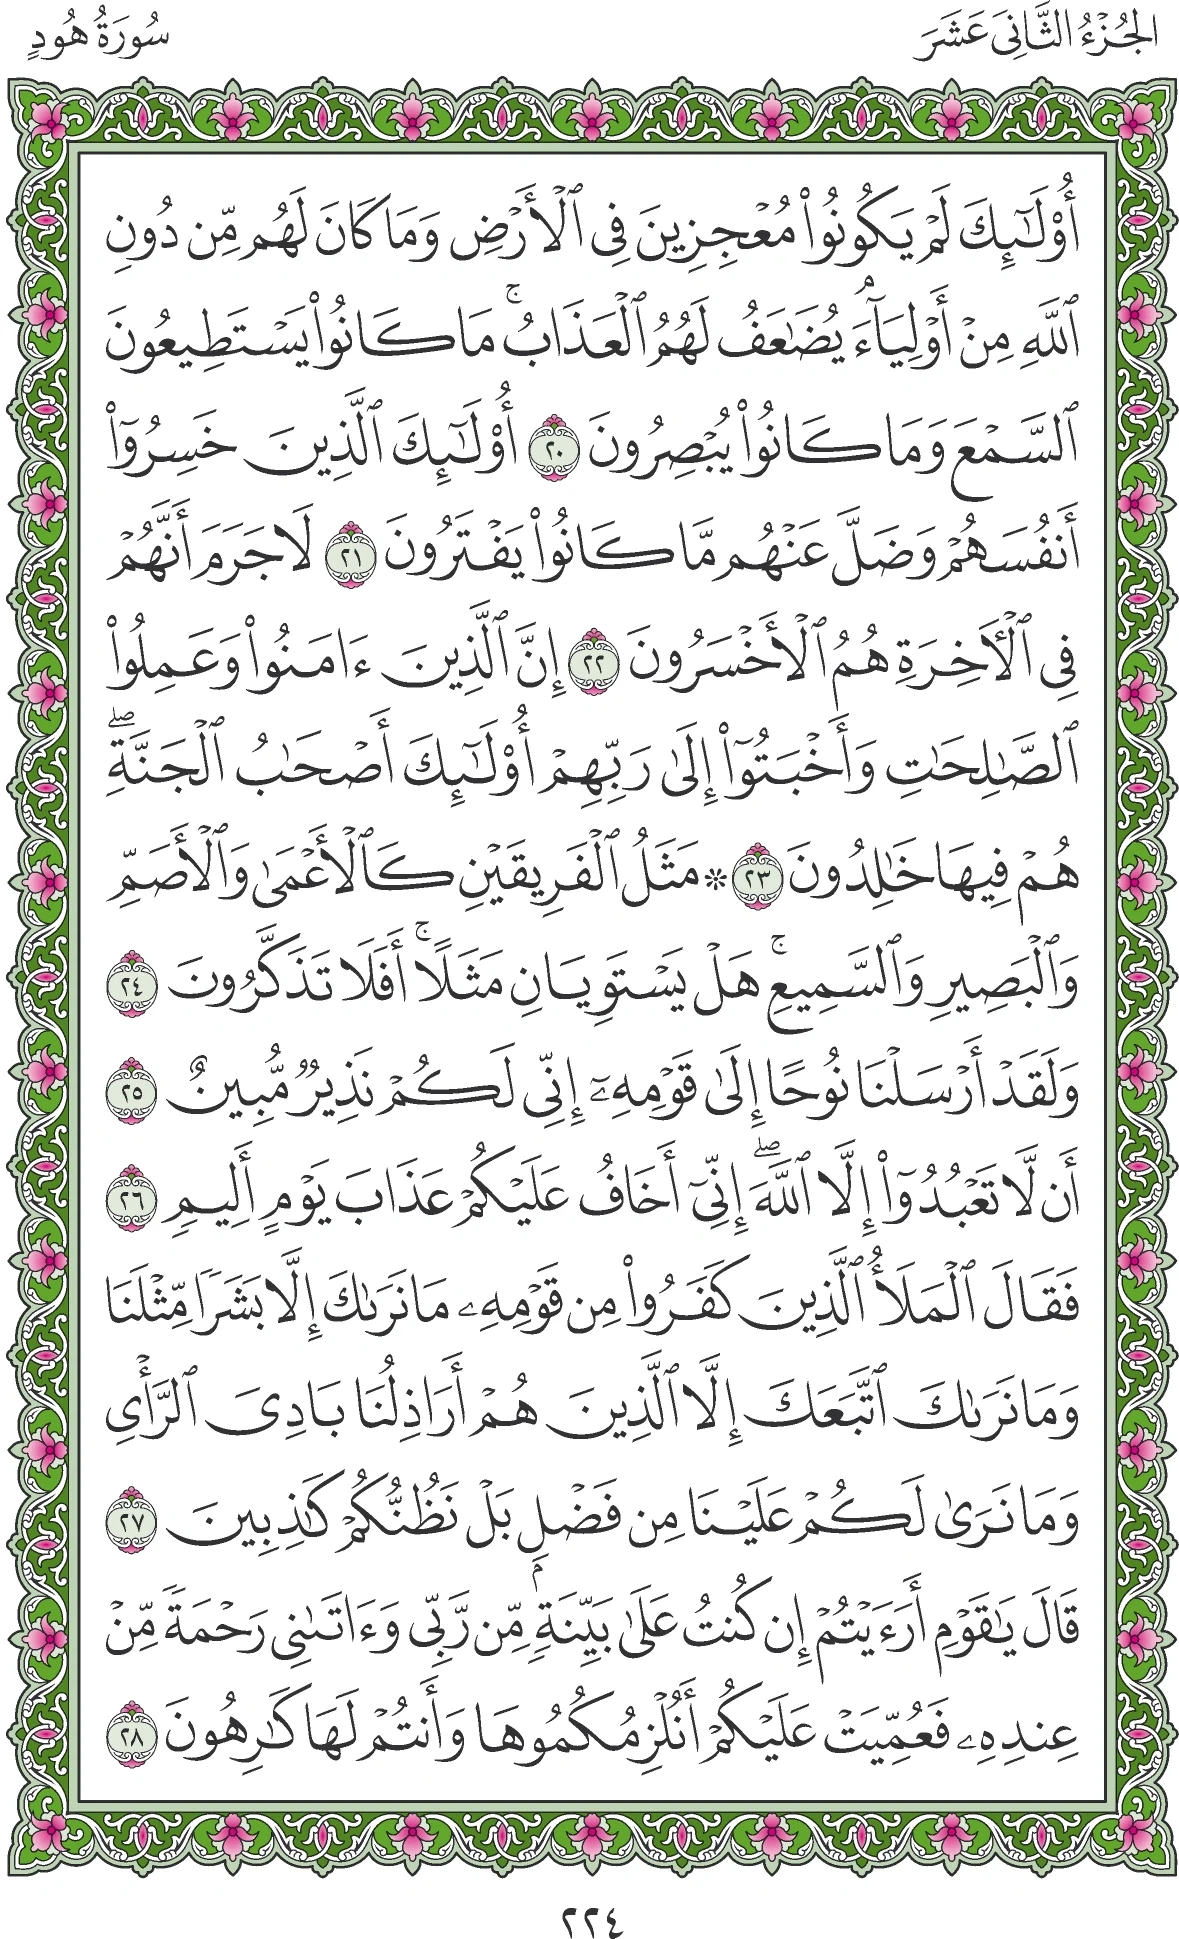 الجُزْءُ الثَّانِي عَشَرَ
سُورَةُ هُودٍ
أُوْلَٰٓئِكَ لَمۡ يَكُونُواْ مُعۡجِزِينَ فِي ٱلۡأَرۡضِ وَمَا كَانَ لَهُم مِّن دُونِ
ٱللَّهِ مِنۡ أَوۡلِيَآءَۘ يُضَٰعَفُ لَهُمُ ٱلۡعَذَابُۚ مَا كَانُواْ يَسۡتَطِيعُونَ
ٱلسَّمۡعَ وَمَا كَانُواْ يُبۡصِرُونَ ٢٠ أُوْلَٰٓئِكَ ٱلَّذِينَ خَسِرُوٓاْ
أَنفُسَهُمۡ وَضَلَّ عَنۡهُم مَّا كَانُواْ يَفۡتَرُونَ ٢١ لَا جَرَمَ أَنَّهُمۡ
فِي ٱلۡأٓخِرَةِ هُمُ ٱلۡأَخۡسَرُونَ ٢٢ إِنَّ ٱلَّذِينَ ءَامَنُواْ وَعَمِلُواْ
ٱلصَّٰلِحَٰتِ وَأَخۡبَتُوٓاْ إِلَىٰ رَبِّهِمۡ أُوْلَٰٓئِكَ أَصۡحَٰبُ ٱلۡجَنَّةِۖ
هُمۡ فِيهَا خَٰلِدُونَ ٢٣ ۞ مَثَلُ ٱلۡفَرِيقَيۡنِ كَٱلۡأَعۡمَىٰ وَٱلۡأَصَمِّ
وَٱلۡبَصِيرِ وَٱلسَّمِيعِۚ هَلۡ يَسۡتَوِيَانِ مَثَلًاۚ أَفَلَا تَذَكَّرُونَ ٢٤
وَلَقَدۡ أَرۡسَلۡنَا نُوحًا إِلَىٰ قَوۡمِهِۦٓ إِنِّي لَكُمۡ نَذِيرٞ مُّبِينٌ ٢٥
أَن لَّا تَعۡبُدُوٓاْ إِلَّا ٱللَّهَۖ إِنِّيٓ أَخَافُ عَلَيۡكُمۡ عَذَابَ يَوۡمٍ أَلِيمٖ ٢٦
فَقَالَ ٱلۡمَلَأُ ٱلَّذِينَ كَفَرُواْ مِن قَوۡمِهِۦ مَا نَرَىٰكَ إِلَّا بَشَرٗا مِّثۡلَنَا
وَمَا نَرَىٰكَ ٱتَّبَعَكَ إِلَّا ٱلَّذِينَ هُمۡ أَرَاذِلُنَا بَادِيَ ٱلرَّأۡيِ
وَمَا نَرَىٰ لَكُمۡ عَلَيۡنَا مِن فَضۡلِۭ بَلۡ نَظُنُّكُمۡ كَٰذِبِينَ ٢٧
قَالَ يَٰقَوۡمِ أَرَءَيۡتُمۡ إِن كُنتُ عَلَىٰ بَيِّنَةٖ مِّن رَّبِّي وَءَاتَىٰنِي رَحۡمَةٗ مِّنۡ
عِندِهِۦ فَعُمِّيَتۡ عَلَيۡكُمۡ أَنُلۡزِمُكُمُوهَا وَأَنتُمۡ لَهَا كَٰرِهُونَ ٢٨
٢٢٤